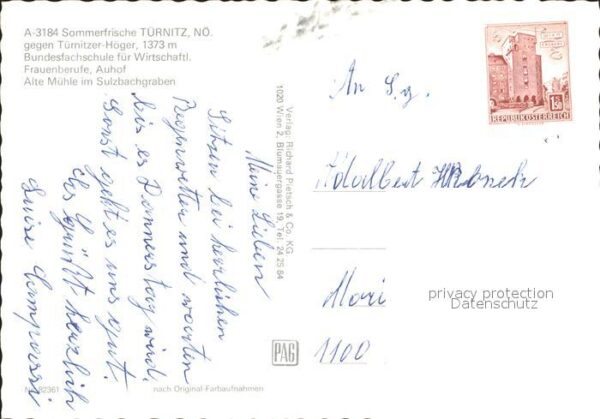 A-3184 Sommerfrische TÜRNITZ, NÖ.
gegen Türnitzer-Höger, 1373 m
Bundesfachschule für Wirtschaftl.
Frauenberufe, Auhof
Alte Mühle im Sulzbachgraben
Meine Lieben
Sitzen bei herrlichen
Regenwetter und warten
bis es Donnerstag wird.
Sonst geht es uns gut.
Es grüßt herzlich
Luise
Verlag: Richard Pietsch & Co. KG
1020 Wien 2, Blumauergasse 19, Tel. 24 25 84
PAG
Nr. 82361
nach Original-Farbaufnahmen
REPUBLIK ÖSTERREICH
An Fa.
Adalbert
1100
privacy protection
Datenschutz